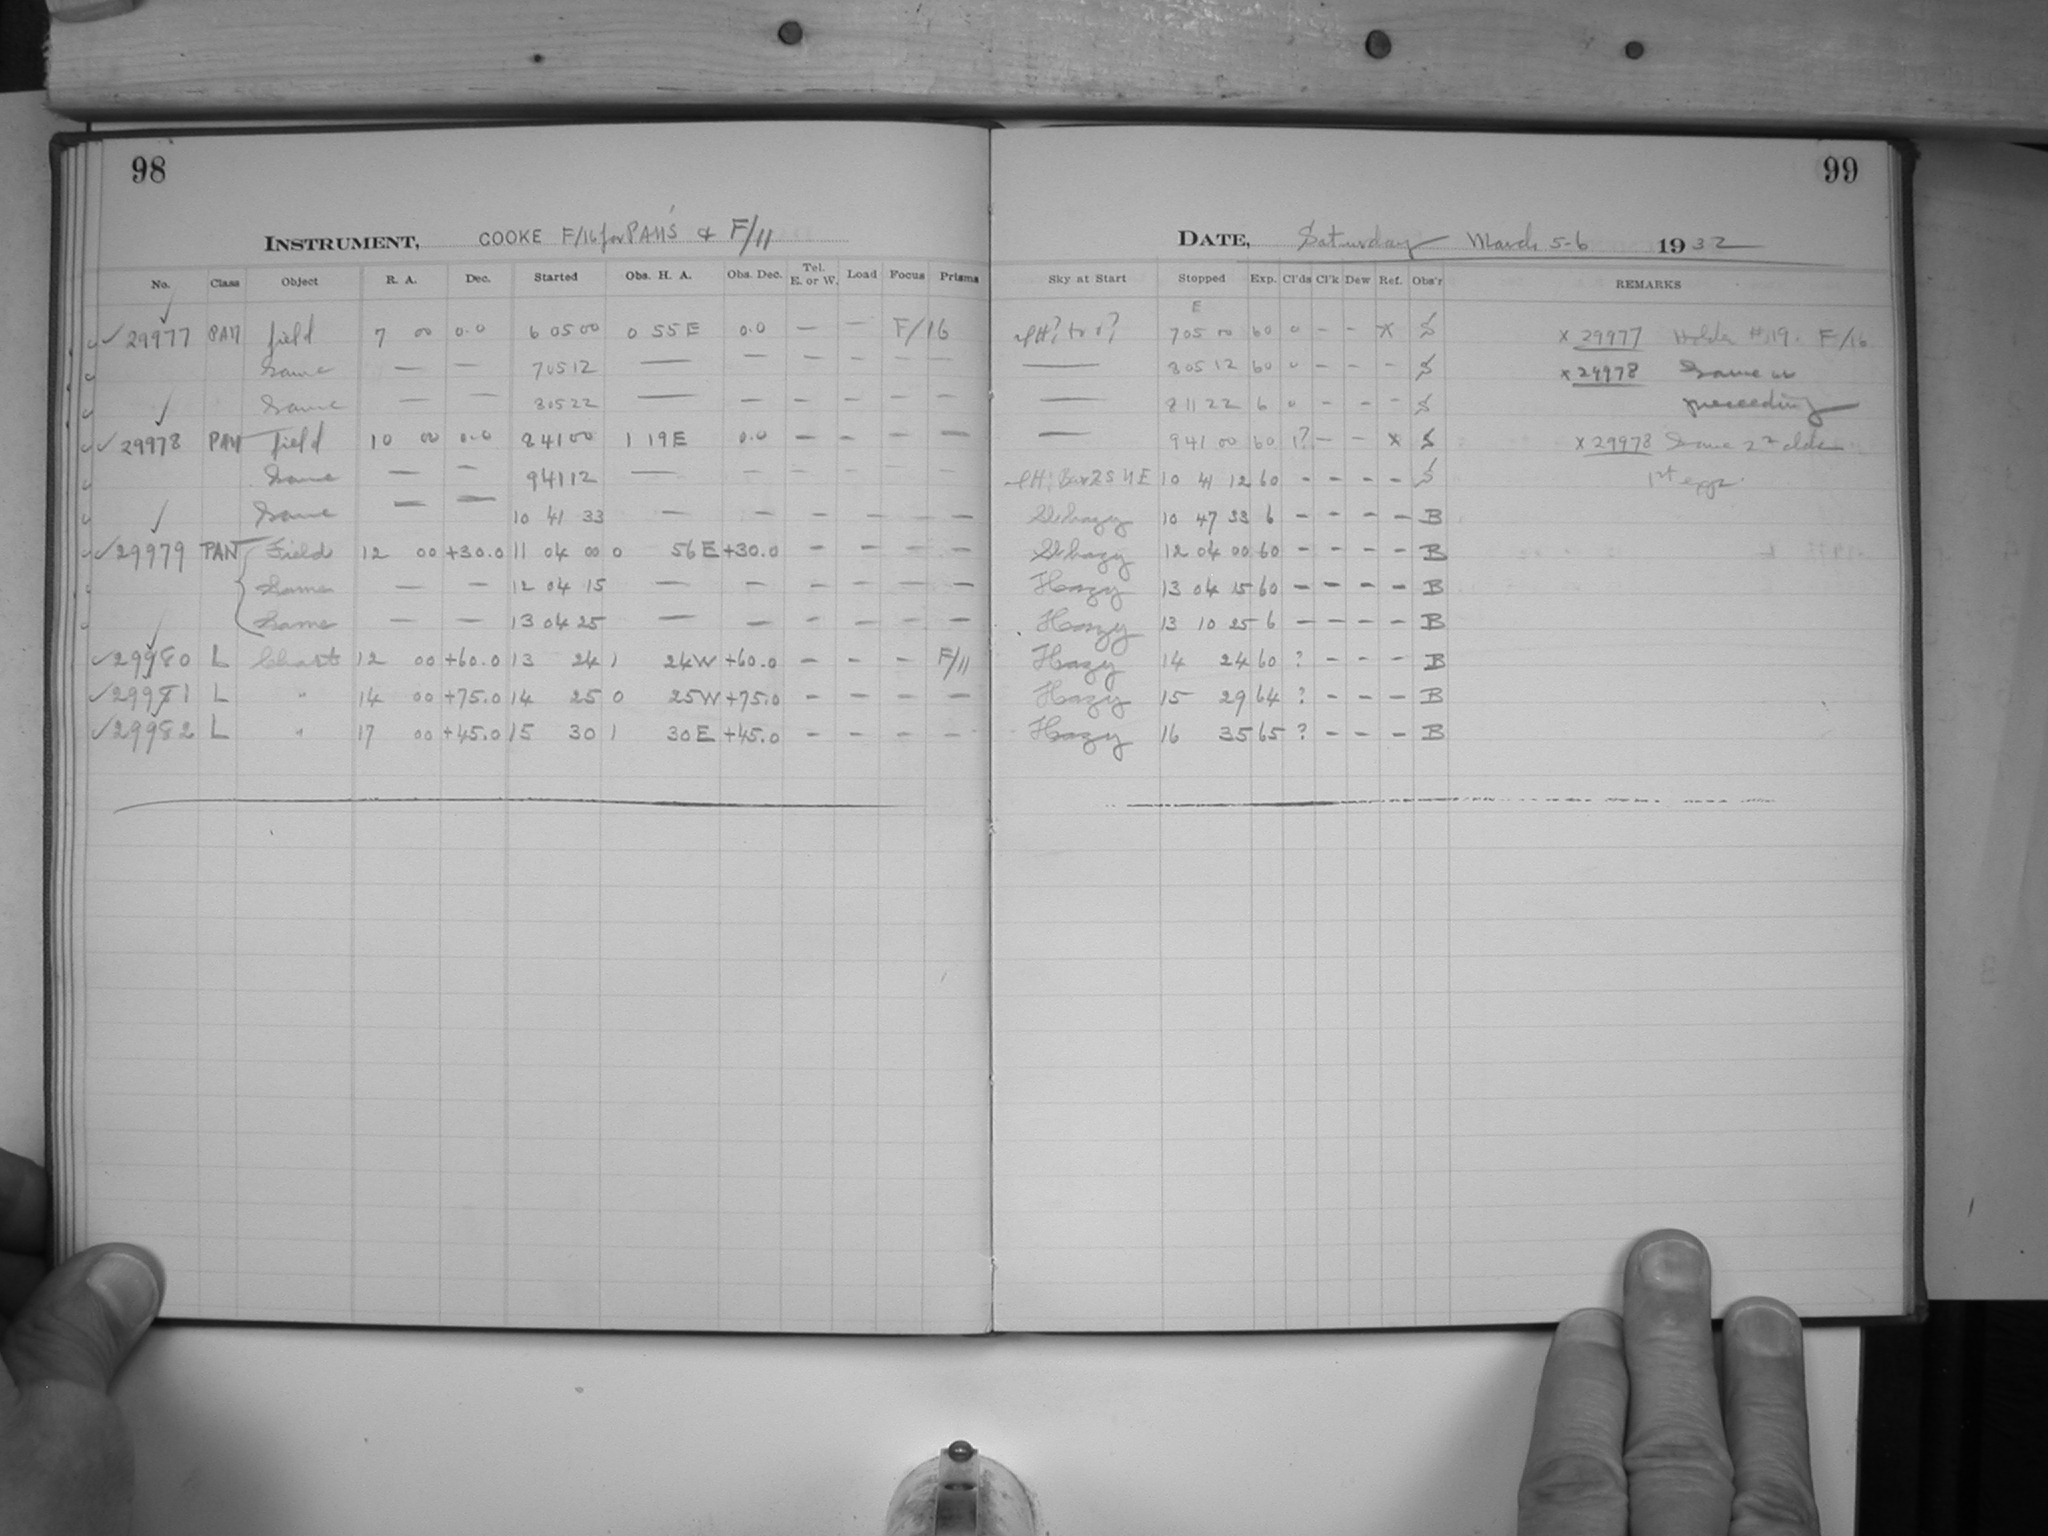 98
INSTRUMENT, COOKE F/16 for PAN'S & F/11
No. Class Object R. A. Dec. Started Obs. H. A. Obs. Dec. Tel. E. or W. Load Focus Prisms
29977 PAN field 7 00 0.0 6 05 00 0 55 E 0.0 — — F/16
Same — — 7 05 12 — — — — — —
Same — — 8 05 22 — — — — — —
29978 PAN field 10 00 0.0 8 41 00 1 19 E 0.0 — — — —
Same — — 9 41 12 — — — — — —
Same — — 10 41 33 — — — — — —
29979 PAN Field 12 00 +30.0 11 04 00 0 56 E +30.0 — — — —
Same — — 12 04 15 — — — — — —
Same — — 13 04 25 — — — — — —
29980 L Chart 12 00 +60.0 13 24 1 24 W +60.0 — — — F/11
29981 L " 14 00 +75.0 14 25 0 25 W +75.0 — — — —
29982 L " 17 00 +45.0 15 30 1 30 E +45.0 — — — —
99
DATE, Saturday March 5-6 1932
Sky at Start Stopped Exp. Cl'ds Cl'k Dew Ref. Obs'r REMARKS
E
7 05 00 60 0 - - x S x 29977 Holder #19. F/16
— 8 05 12 60 0 - - - S x 29978 Same as
— 8 11 22 6 0 - - - S preceeding
— 9 41 00 60 1? - - x S x 29978 Same 2nd
10 41 12 60 - - - - S 1st exp.
Sl hazy 10 47 33 6 - - - - B
Sl hazy 12 04 00 60 - - - - B
Hazy 13 04 15 60 - - - - B
Hazy 13 10 25 6 - - - - B
Hazy 14 24 60 ? - - - B
Hazy 15 29 64 ? - - - B
Hazy 16 35 65 ? - - - B